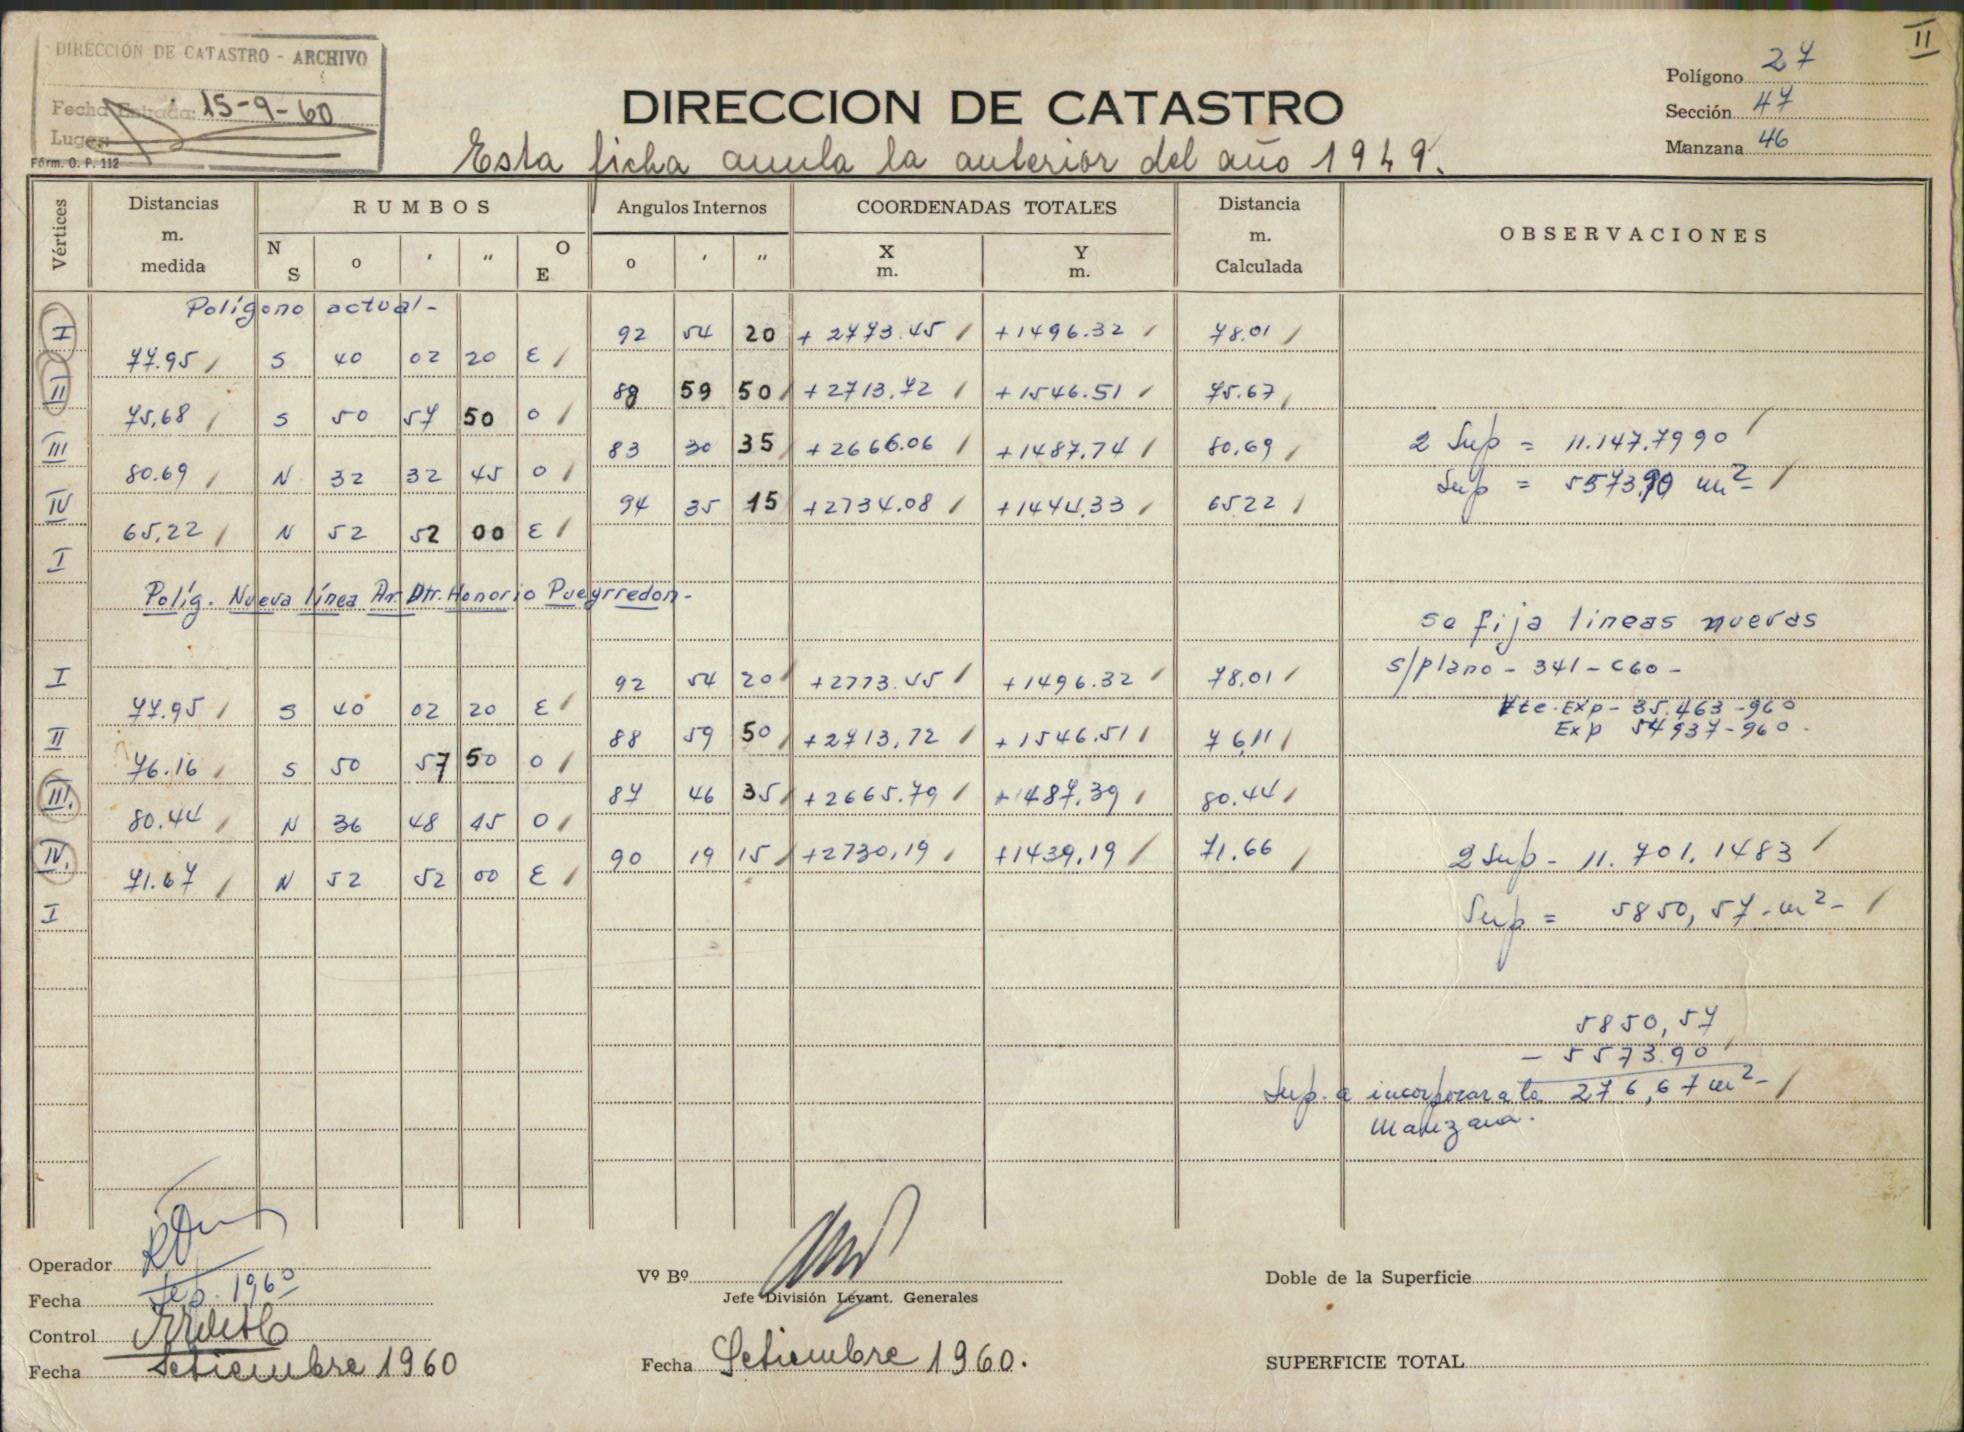 II
DIRECCIÓN DE CATASTRO - ARCHIVO
Fecha Entrada: 15-9-60
Lugar:
Fórm. O. P. 112
DIRECCION DE CATASTRO
Esta ficha anula la anterior del año 1949.
Polígono 27
Sección 47
Manzana 46
Vértices Distancias m. medida RUMBOS Angulos Internos COORDENADAS TOTALES Distancia m. Calculada OBSERVACIONES
N S o ' " O E o ' " X m. Y m.
Polígono actual-
I 92 54 20 + 2773.45 +1496.32 78.01
77.95 S 40 02 20 E
II 88 59 50 +2713.72 +1546.51 75.67
75,68 S 50 57 50 O
III 83 30 35 +2666.06 +1487.74 80.69 2 Sup = 11.147.7990
80.69 N 32 32 45 O Sup = 5573.90 m²-
IV 94 35 15 +2734.08 +1444.33 65.22
65,22 N 52 52 00 E
I
Políg. Nueva línea Av. Dtr. Honorio Pueyrredon-
se fija lineas nuevas
s/plano - 341-C60-
I 92 54 20 +2773.45 +1496.32 78.01
77.95 S 40 02 20 E Vte. Exp - 35.463-960
Exp 54937-960.
II 88 59 50 +2713,72 +1546.51 76,11
76.16 S 50 57 50 O
III. 87 46 35 +2665.79 +1487,39 80.44
80.44 N 36 48 45 O
IV. 90 19 15 +2730,19 +1439,19 71.66 2 Sup - 11.701.1483
71.67 N 52 52 00 E
I Sup = 5850,57-m²-
5850,57
- 5573.90
Sup. a incorporar a la 276,67 m²-
manzana.
Operador
Fecha Sep. 1960
Control
Fecha Setiembre 1960
Vº Bº
Jefe División Levant. Generales
Fecha Setiembre 1960.
Doble de la Superficie
SUPERFICIE TOTAL